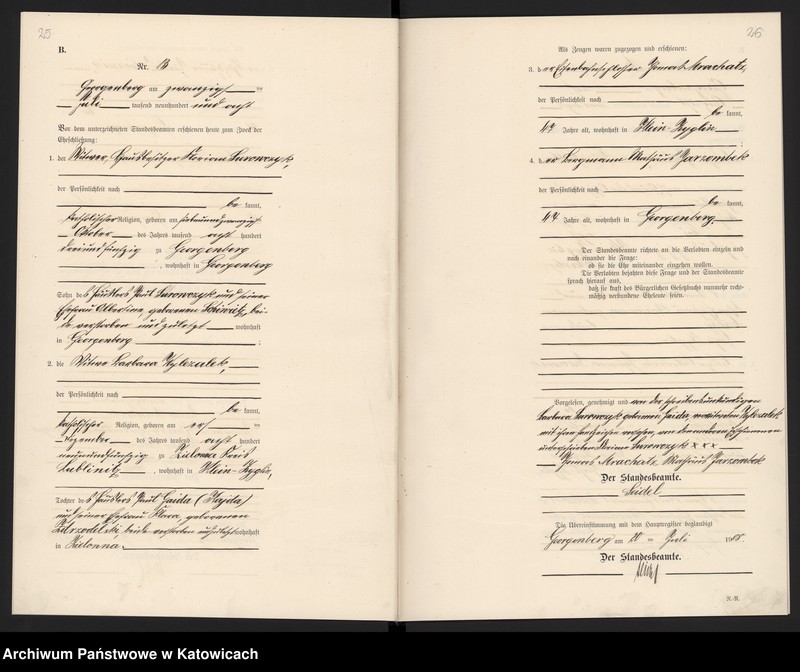 25
B.
Nr. 13
Georgenberg am zwanzigsten
Juli tausend neunhundert und acht
Vor dem unterzeichneten Standesbeamten erschienen heute zum Zweck der
Eheschließung:
1. der Witwer, Hausbesitzer Florian Surowczyk,
der Persönlichkeit nach
be kannt,
katholischer Religion, geboren am siebenundzwanzigsten
Oktober des Jahres tausend acht hundert
dreiundfünfzig zu Georgenberg
, wohnhaft in Georgenberg
Sohn des Häuslers Paul Surowczyk und seiner
Ehefrau Albertine geborenen, bei-
de verstorben und zuletzt wohnhaft
in Georgenberg ;
2. die Witwe Barbara Kylezalek,
der Persönlichkeit nach
be kannt,
katholischer Religion, geboren am elften
Dezember des Jahres tausend acht hundert
neunundfünfzig zu Zielonna Kreis
Lublinitz, wohnhaft in Klein-Zyglin,
Tochter des Häuslers Paul Gaida (Hajda)
und seiner Ehefrau Klara, geborenen
beide verstorben und zuletzt wohnhaft
in Zielonna.
26
Als Zeugen waren zugezogen und erschienen:
3. der Eisenbahnschlosser Thomas Mrachatz,
der Persönlichkeit nach
be kannt,
47 Jahre alt, wohnhaft in Klein-Zyglin
;
4. der Bergmann Mathäus Jarzombek
der Persönlichkeit nach
be kannt,
47 Jahre alt, wohnhaft in Georgenberg.
Der Standesbeamte richtete an die Verlobten einzeln und
nach einander die Frage:
ob sie die Ehe miteinander eingehen wollen.
Die Verlobten bejahten diese Frage und der Standesbeamte
sprach hierauf aus,
daß sie kraft des Bürgerlichen Gesetzbuchs nunmehr recht-
mäßig verbundene Eheleute seien.
Vorgelesen, genehmigt und von der schreibensunkundigen
Barbara Surowczyk geborenen Gaida, verwitweten Kylezalek
mit ihren Handzeichen versehen, von den anderen Erschienenen
unterschrieben Florian Surowczyk x x x
Thomas Mrachatz Mathäus Jarzombek
Der Standesbeamte.
Seidel
Die Übereinstimmung mit dem Hauptregister beglaubigt
Georgenberg am 20 ten Juli 1908.
Der Standesbeamte.
Seidel
R.-R.
Archiwum Państwowe w Katowicach